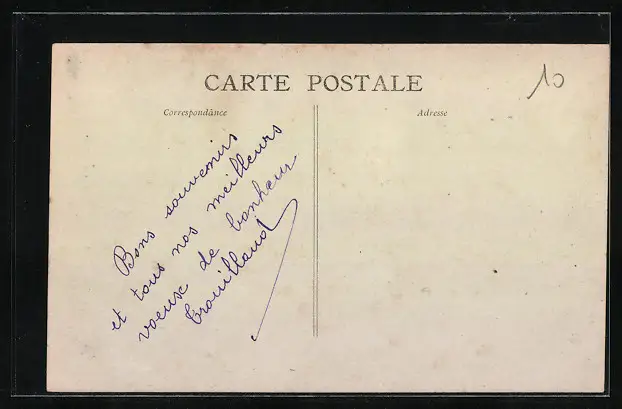 CARTE POSTALE
10
Correspondànce
Adresse
Bons souvenirs
et tous nos meilleurs
voeux de bonheur
Trouillaud